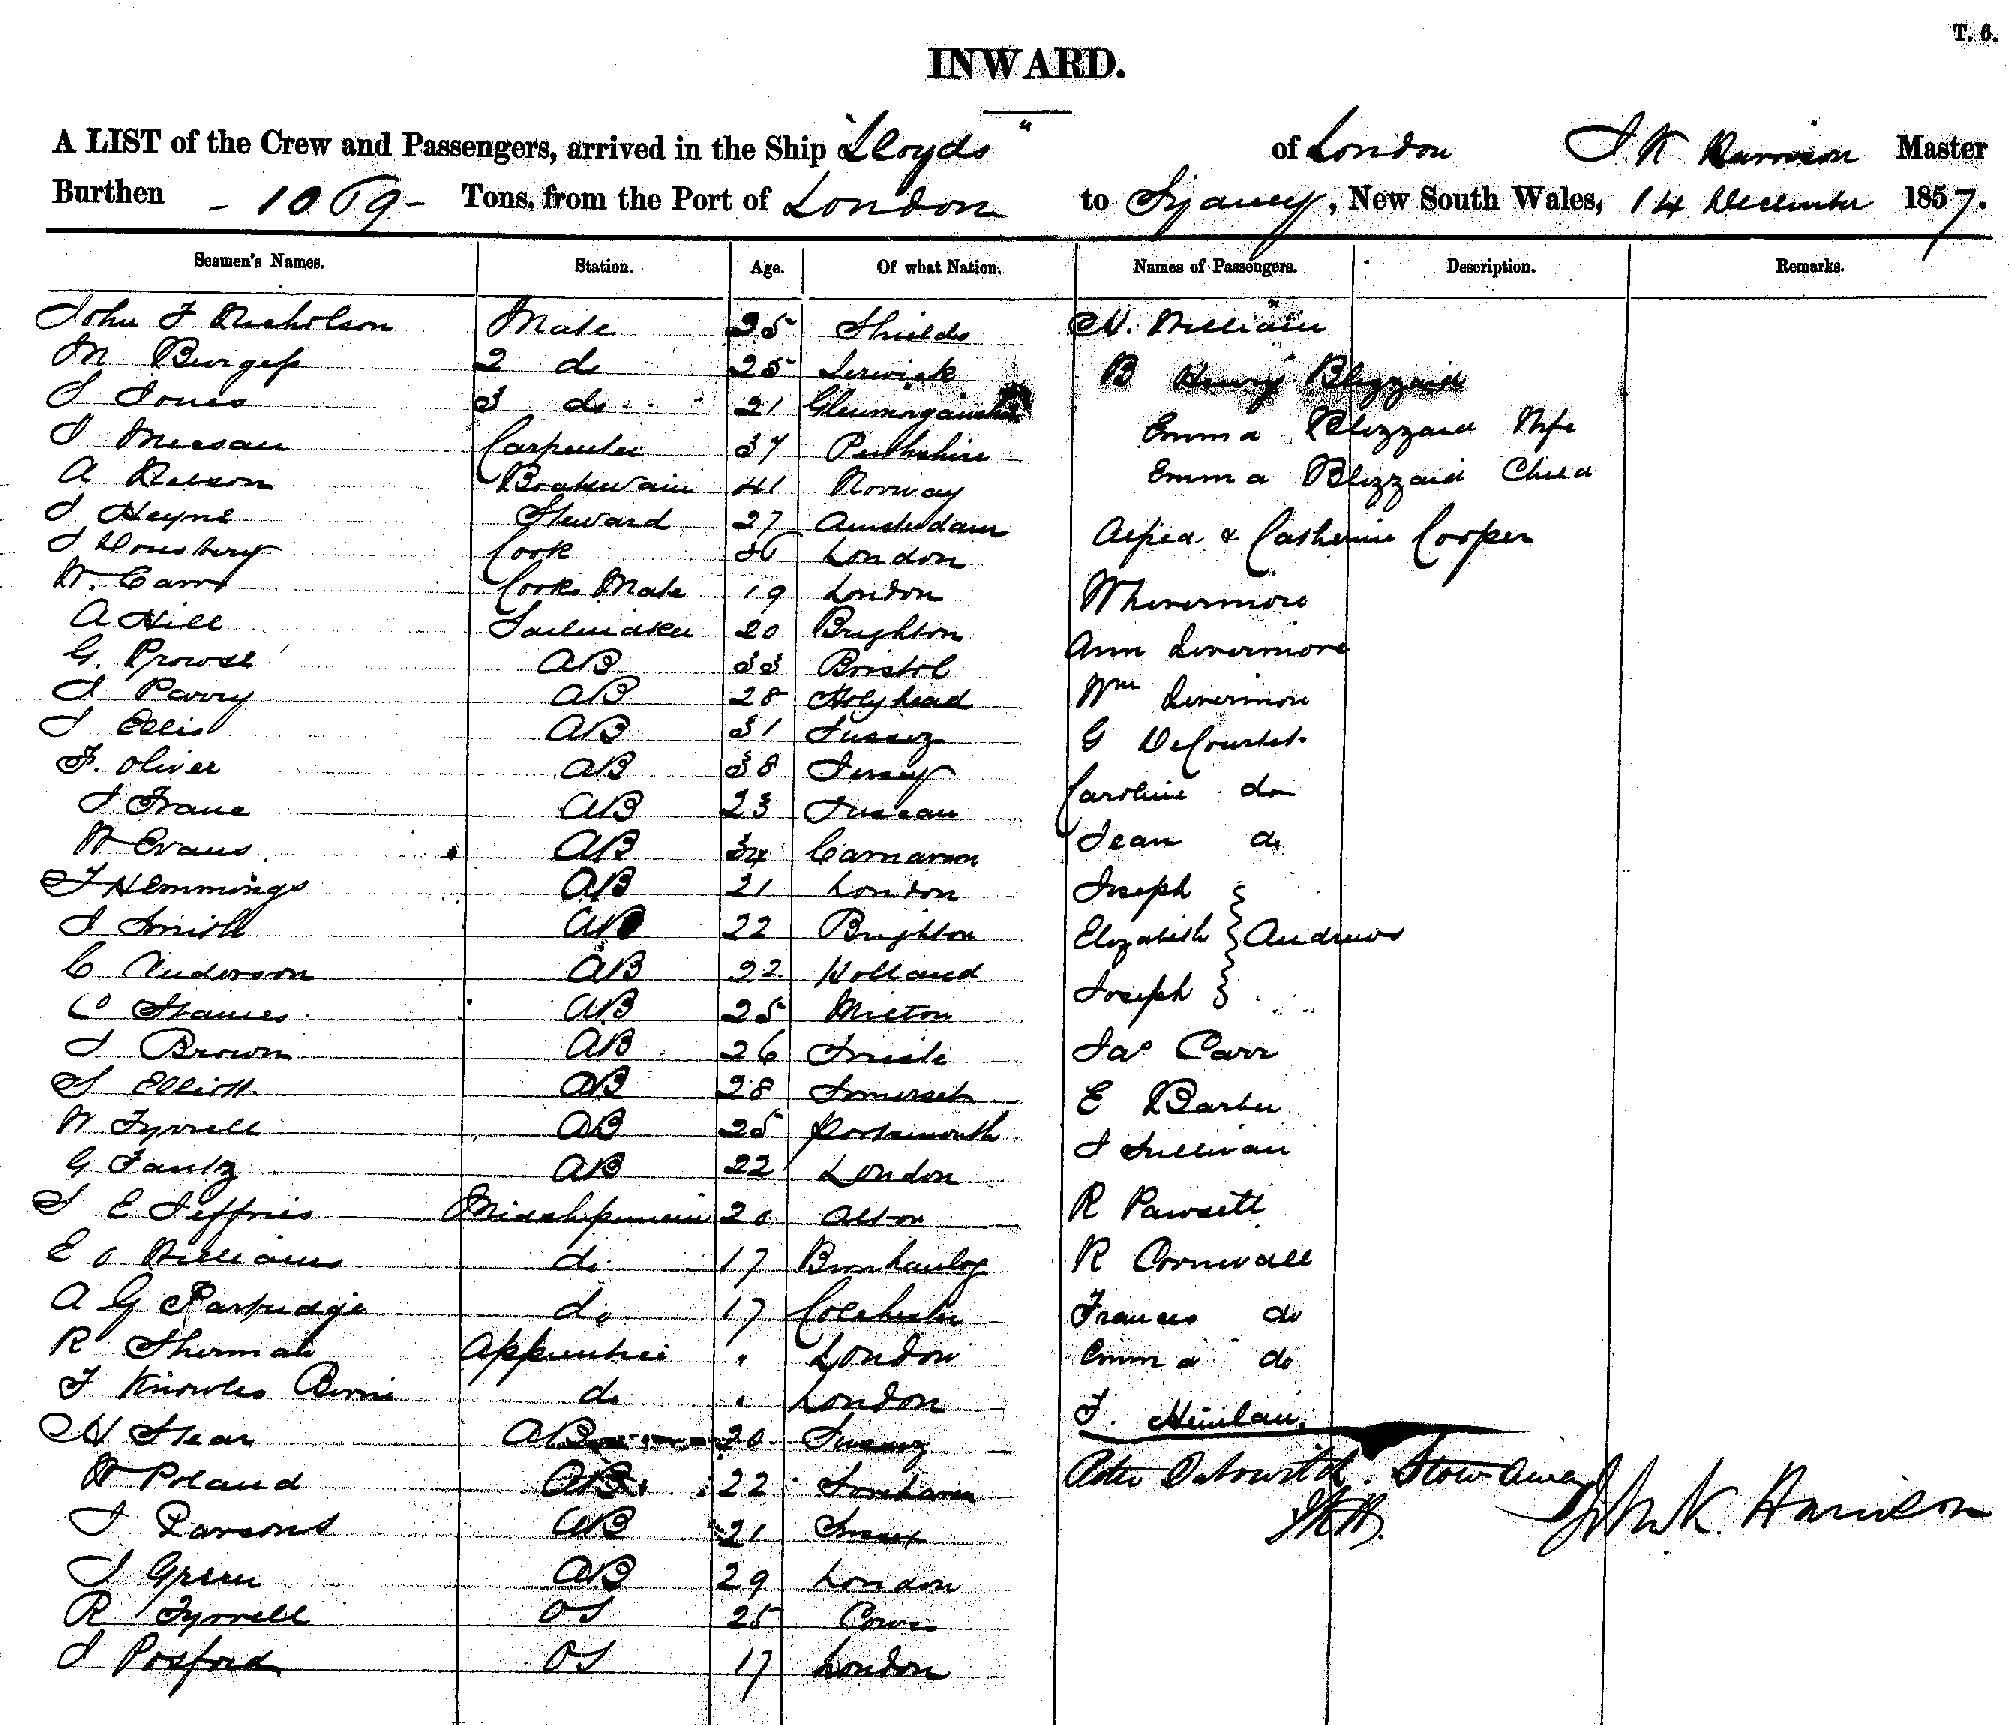 T. 6.
INWARD.
A LIST of the Crew and Passengers, arrived in the Ship "Lloyds" of London J K Harrison Master
Burthen - 1069 - Tons, from the Port of London to Sydney, New South Wales, 14 December 1857.
Seamen's Names. Station. Age. Of what Nation. Names of Passengers. Description. Remarks.
John F Nicholson Mate 25 Shields W. William
M Burgess 2 do 25 Lerwick B Henry Blizzard
J Jones 3 do 21 Glenmorganshire Emma Blizzard Wife
J Carpenter 37 Perthshire Emma Blizzard Child
A Nelson Boatswain 41 Norway
J Heyne Steward 27 Amsterdam Alfred & Catherine Cooper
J Cook 36 London
W. Carr Cooks Mate 19 London W Livermore
A Hill Sailmaker 20 Brighton
G. Prowse AB 33 Bristol Ann Livermore
J Parry AB 28 Holyhead Wm Livermore
J Ellis AB 31 Sussex G DeCourtet
F. Oliver AB 38 Jersey
J AB 23 Caroline do
W Evans AB 34 Carnarvon Jean do
J Hemmings AB 21 London Joseph
J Smith AB 22 Brighton Elizabeth } Andrews
C Anderson AB 22 Holland
C Stames AB 25 Milton Joseph
J Brown AB 26 Jas Carr
S Elliott AB 28 Somerset E Barber
W Tyrrell AB 25 Portsmouth
G AB 22 London J Sullivan
J E Jeffries Midshipman 20 Alton R Pawsett
E O Williams do 17 R Cornwall
A G Partridge do 17 Colchester Frances do
R Apprentice " London Emma do
F Knowles do " London F.
H Stear AB 20 Sussex
W Poland AB 22 Peter Stowaway
J Parsons AB 21 Sussex JKH. John K. Harrison
J Green AB 29 London
R Tyrrell OS 25 Cowes
J Posford OS 17 London